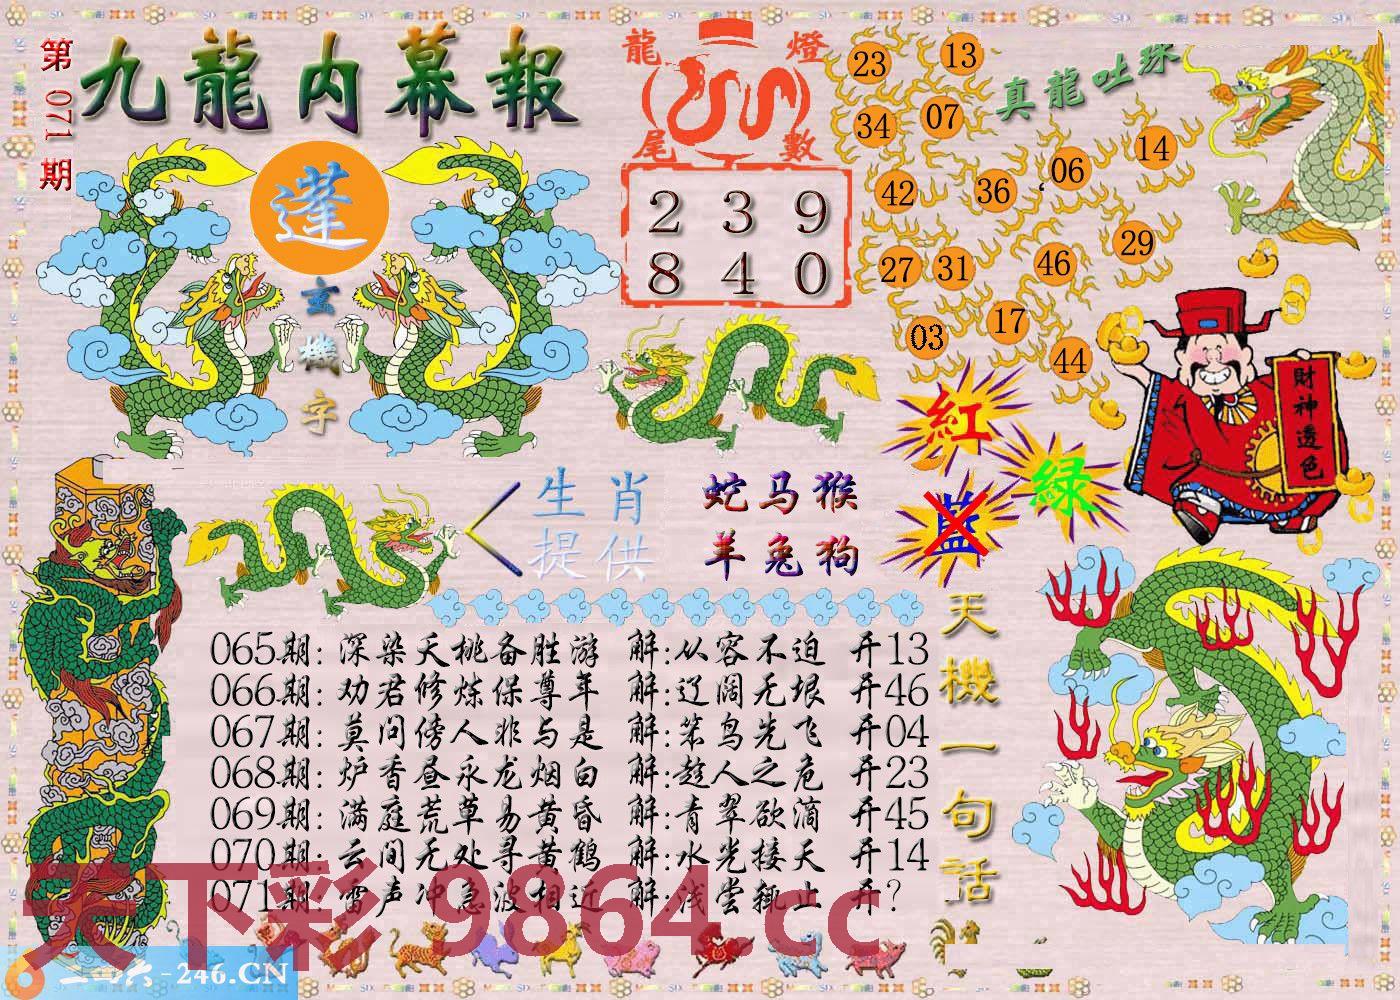 第071期
九龍内幕報
蓬
玄機字
龍燈尾數
2 3 9
8 4 0
真龍吐珠
23 13
34 07
42 36 06 14
27 31 46 29
03 17 44
財神透色
紅
綠
藍
生肖提供
蛇马猴
羊兔狗
天機一句话
065期: 深染夭桃备胜游 解:从容不迫 开13
066期: 劝君修炼保尊年 解:辽阔无垠 开46
067期: 莫问傍人非与是 解:笨鸟先飞 开04
068期: 炉香昼永龙烟白 解:趁人之危 开23
069期: 满庭荒草易黄昏 解:青翠欲滴 开45
070期: 云间无处寻黄鹤 解:水光接天 开14
071期: 雷声冲急波相近 解:浅尝辄止 开?
天下彩 9864.cc
二四六-246.CN